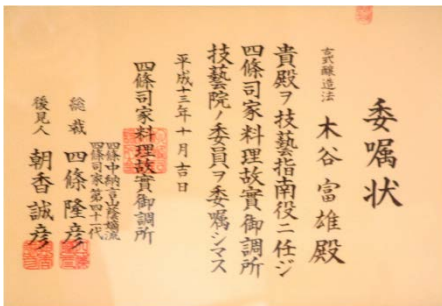 委嘱状
古式醸造法
木谷富雄殿
貴殿ヲ技藝指南役ニ任ジ
四條司家料理故實御調所
技藝院ノ委員ヲ委嘱シマス
平成十三年十月吉日
四條司家料理故實御調所
四條中納言山蔭嫡流
四條司家第四十一代
総裁 四條隆彦
後見人 朝香誠彦